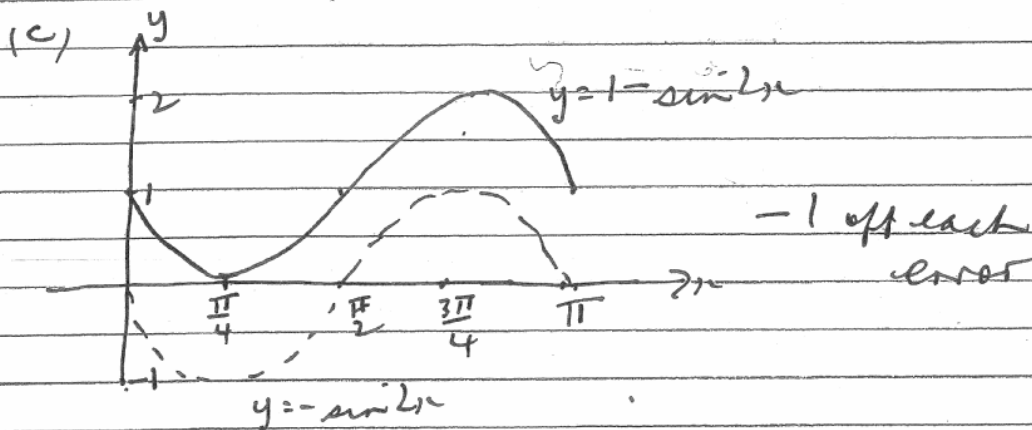 (c)
y
2
y = 1 - sin 2x
1
- 1 off each
error
π/4 π/2 3π/4 π x
-1
y = - sin 2x